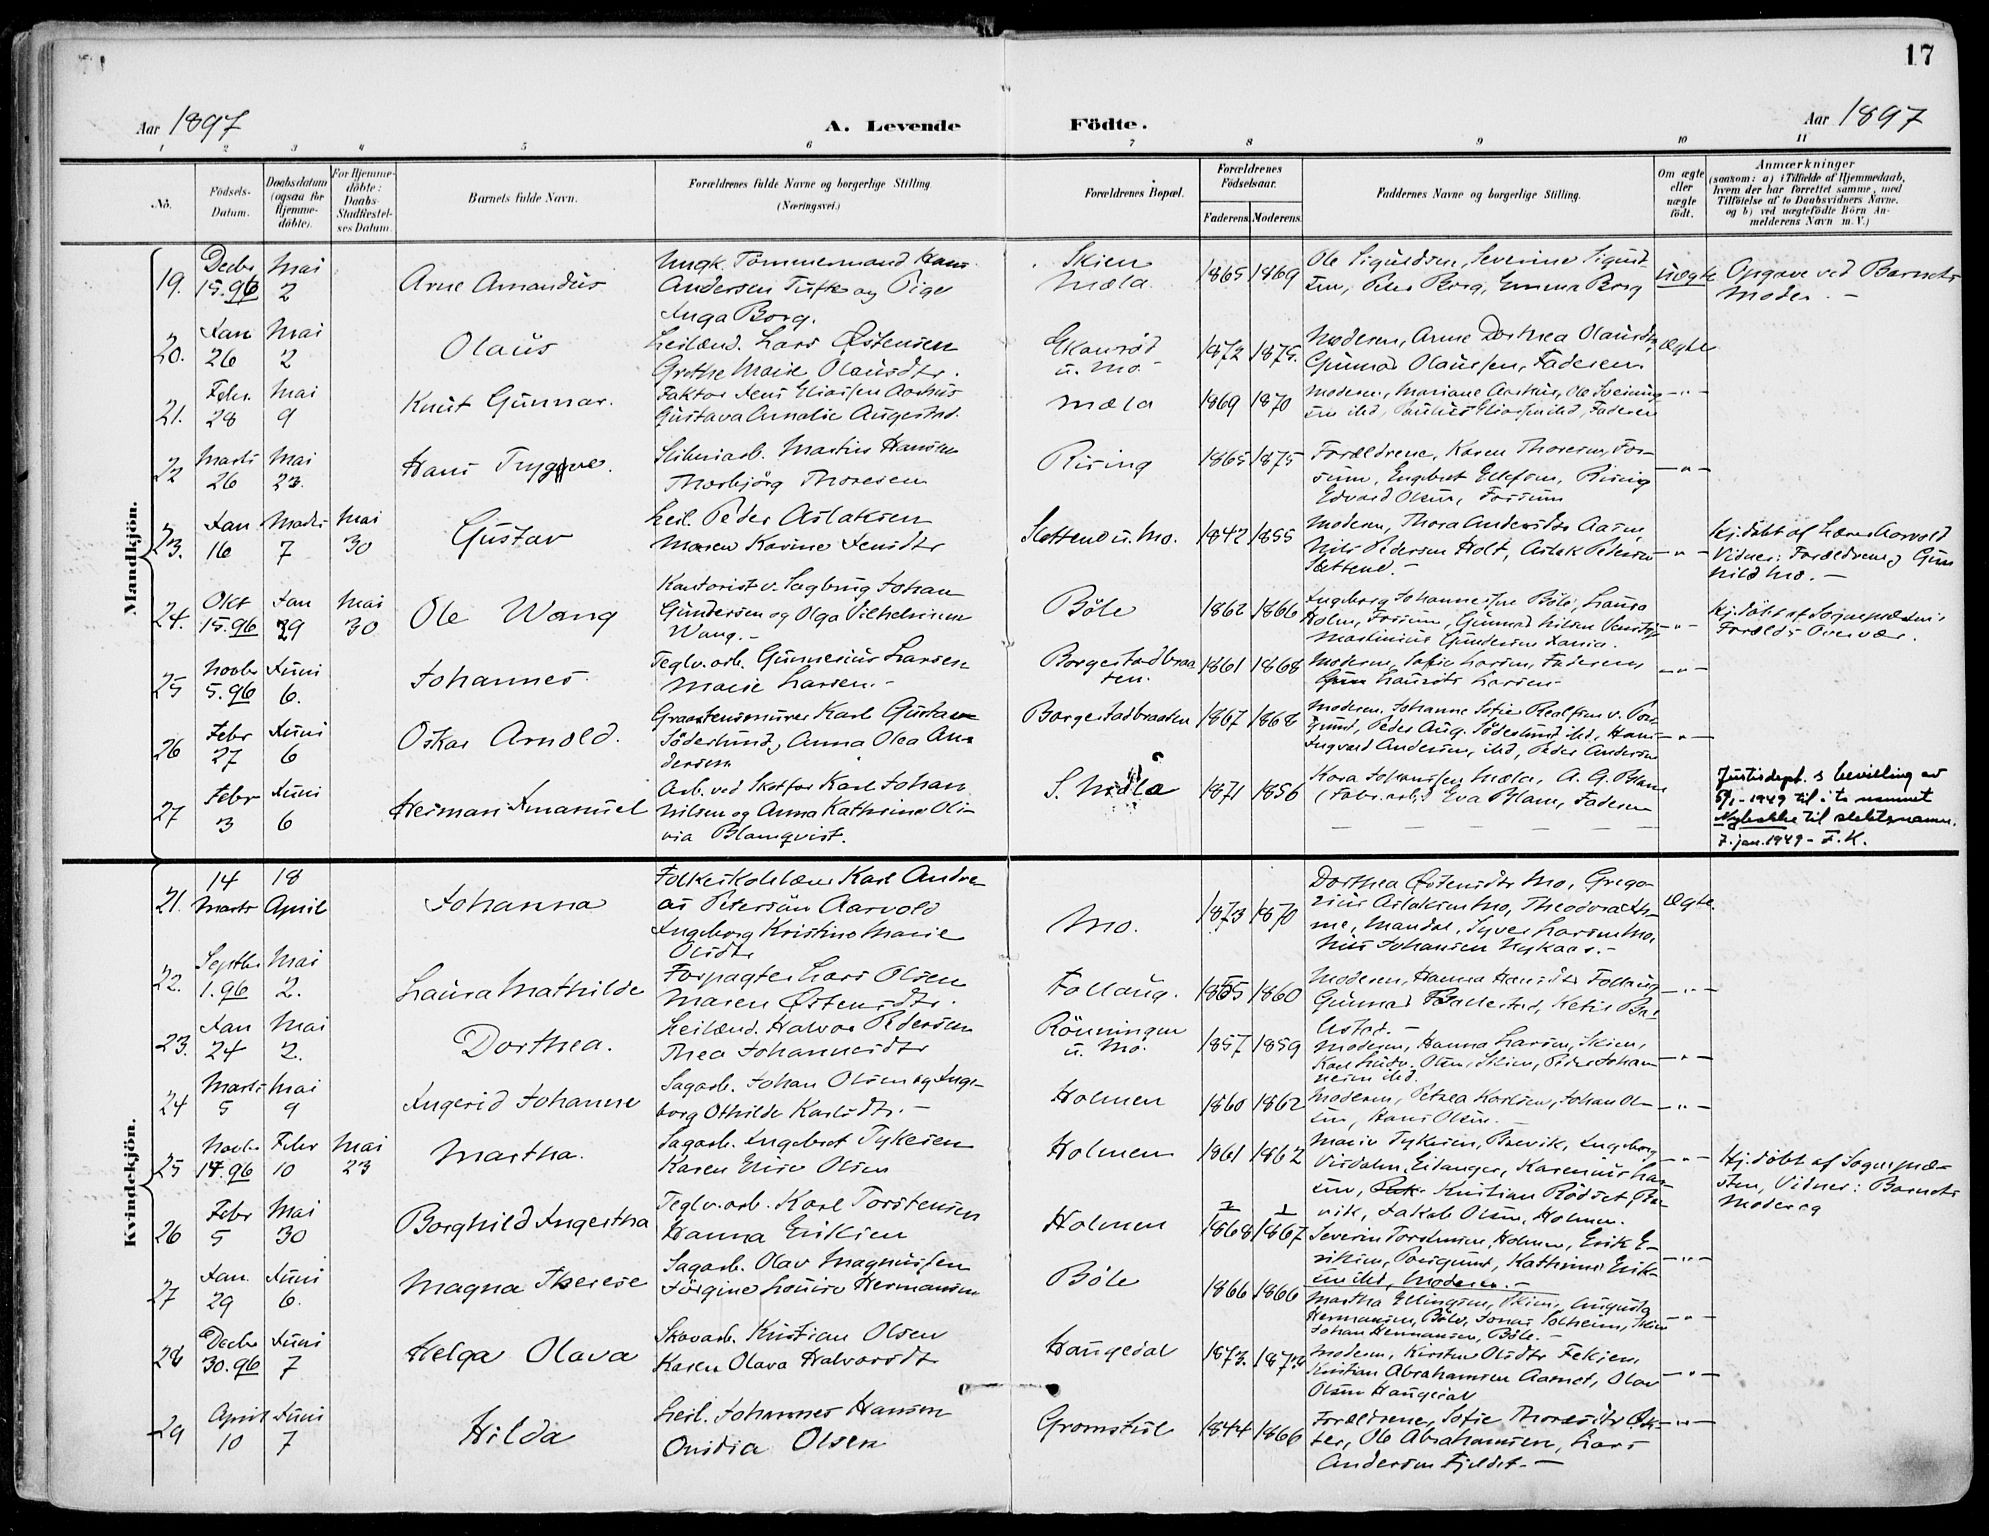 17
Aar 1897
A. Levende Födte.
Aar 1897
1 2 3 4 5 6 7 8 9 10 11
No.
Födsels-
Datum.
Daabsdatum
(ogsaa for
Hjemme-
döbte).
For Hjemme-
döbte:
Daabs-
Stadfæstel-
ses Datum.
Barnets fulde Navn.
Forældrenes fulde Navne og borgerlige Stilling.
(Næringsvei.)
Forældrenes Bopæl.
Forældrenes
Födselsaar.
Faderens. Moderens.
Faddernes Navne og borgerlige Stilling.
Om ægte
eller
uægte
födt.
Anmærkninger
(saasom: a) i Tilfælde af Hjemmedaab,
hvem der har forrettet samme, med
Tilföielse af to Daabsvidners Navne.
og b) ved uægtefödte Börn An-
melderens Navn m. V.)
Mandkjön.
19. Decbr 15.96 Mai 2
Arne Amandus
Ungk. Tömmermand Hans
Andersen Tufte og Pige
Inga Borg.
Skien
Mæla
1865 1869
Ole Sigurdsen, Severine Sigurd-
sen, Peter Borg, Emma Borg
uægte
Opgave ved Barnets
Moder. –
20. Jan 26 Mai 2
Olaus
Leilænd. Lars Östensen
Grethe Marie Olausdtr.
u. Mo.
1872 1875.
Moderen, Anne Dorthea Olausdtr,
Gunnar Olaussen, Faderen
ægte
21. Febr. 28 Mai 9
Knut Gunnar.
Faktor Jens Eliassen Aarhus
Gustava Amalie Augestad.
Mæla
1869 1870
Moderen, Mariane Aarhus, Ole Sveinung-
sen ibd, Paulus Eliassen ibd, Faderen
–"–
22 Marts 26 Mai 23.
Hans Trygve.
Sliberiarb. Martin Hansen
Thorbjörg Thoresen
Rising
1865 1875
Forældrene, Karen Thoresen, Fos-
sum, Engebret Ellefsen, Rising
Edvard Olsen, Fossum
–"–
23. Jan 16 Marts 7 Mai 30
Gustav
Leil. Peder Aslaksen
Maren Karine Jensdtr
Slettene u. Mo.
1842 1855
Moderen, Thora Andersdtr Aasen,
Nils Pedersen Holt, Aslak Pedersen
Slettene. –
–"–
Hj.döbt af Lærer Aarvold
Vidner: Forældrene, Gun
hild Mo. –
24. Okt 15.96 Jan 29 Mai 30
Ole Wang
Kontorist v. Sagbrug Johan
Gundersen og Olga Vilhelmine
Wang. –
Böle
1862 1866
Ingeborg Johannessen Böle, Laura
Holm, Fossum, Gunnar Nilsen Venstöp
Martinius Gundersen
–"–
Hj.döbt af Sognepræsten i
Foræld. Overvær.
25 Novbr 5.96 Juni 6.
Johannes.
Teglv.arb. Gunnerius Larsen
Marie Larsen. –
Borgestadbraa
ten.
1861 1868
Moderen, Sofie Larsen, Faderen
Lauritz Larsen
–"–
26 Febr 27 Juni 6
Oskar Arnold.
Graastensmurer Karl Gustav
Söderlund, Anna Olea An-
dersen
Borgestadbraaten
1867 1868
Moderen, Johanne Sofie Realfsen v. Pors-
grund, Peder Aug. Söderlund ibd, Hans
Ingvard Andersen, ibd, Peder Andersen
–"–
27 Febr 3 Juni 6
Herman Imanuel
Arb. ved Skotfos Karl Johan
Nilsen og Anna Kathrine Oli-
via Blamqvist.
S. Mæla
1871 1856
Kara Johanssen Mæla, A. G. Blam
(Fabr.arb.) Eva Blam, Faderen
Justisdept.s bevilling av
5/1-1949 til å ta navnet
til slektsnavn.
7. jan. 1949 - F.K.
Kvindekjön.
21. 14 Marts 18 April
Johanna
Folkeskolelærer Karl Andre-
as Petersön Aarvold
Ingeborg Kristine Marie
Olsdtr
Mo.
1873 1870
Dorthea Östensdtr Mo, Grego-
rius Aslaksen Mo, Theodora
Mandal, Syver Larsen Mo,
Nils Johansen Nykaas. –
ægte.
22. Septbr 1.96 Mai 2.
Laura Mathilde
Forpagter Lars Olsen
Maren Östensdtr.
Follaug.
1855 1860
Moderen, Hanna Hansdtr Follaug
Gunnar Ballestad, Ketil Bal-
lestad. –
–"–
23. Jan 24 Mai 2.
Dorthea.
Leilænd. Halvor Pedersen
Thea Johannesdtr
Rönningen
u. Mo.
1857 1859
Moderen, Hanna Larsen, Skien,
Karl Ludv. Olsen, Skien, Peder Johan
nesen ibd.
–"–
24 Marts 5 Mai 9
Ingerid Johanne
Sagarb. Johan Olsen og Inge-
borg Othilde Karlsdtr. –
Holmen
1860 1862
Moderen, Petrea Karlsen, Johan Ol-
sen, Hans Olsen. –
–"–
25 Novbr 14.96 Febr 10 Mai 23
Martha.
Sagarb. Ingebret Tykesen
Karen Elise Olsen
Holmen
1861 1862
Marie Tykesen, Brevik, Ingeborg
Virdalen, Eidanger, Karenius Lar-
sen, Kristian Rödset, Bre-
vik, Jakob Olsen, Holmen.
–"–
Hj.döbt af Sognepræ-
sten, Vidner: Barnets
Moder og
26 Febr 5 Mai 30
Borghild Ingertha
Teglv.arb. Karl Torstensen
Hanna Eriksen
Holmen
1868 1867
Severin Torstensen, Holmen, Erik E-
riksen, Porsgrund, Kathrine Erik-
sen ibd, Moderen. –
–"–
27 Jan. 29 Juni 6.
Magna Therese
Sagarb. Olav Magnussen
Jörgine Louise Hermansen
Böle
1866 1866
Martha Ellingsen, Skien, Augusta
Hermansen, Böle, Jonas Solheim, Skien
Johan Hermansen, Böle. –
–"–
28 Decbr 30.96 Juni 7
Helga Olava
Skovarb. Kristian Olsen
Karen Olava Halvorsdtr
Haugedal
1873. 1873
Moderen, Kirsten Olsdtr Feksen,
Kristian Abrahamsen Aamot, Olav
Olsen Haugedal
–"–
29 April 10 Juni 7
Hilda
Leil. Johannes Hansen
Onsdia Olsen
Gromstul
1844 1866
Forældrene, Sofie Thoresdtr
Ole Abrahamsen, Lars
Andersen Fjeldet. –
–"–